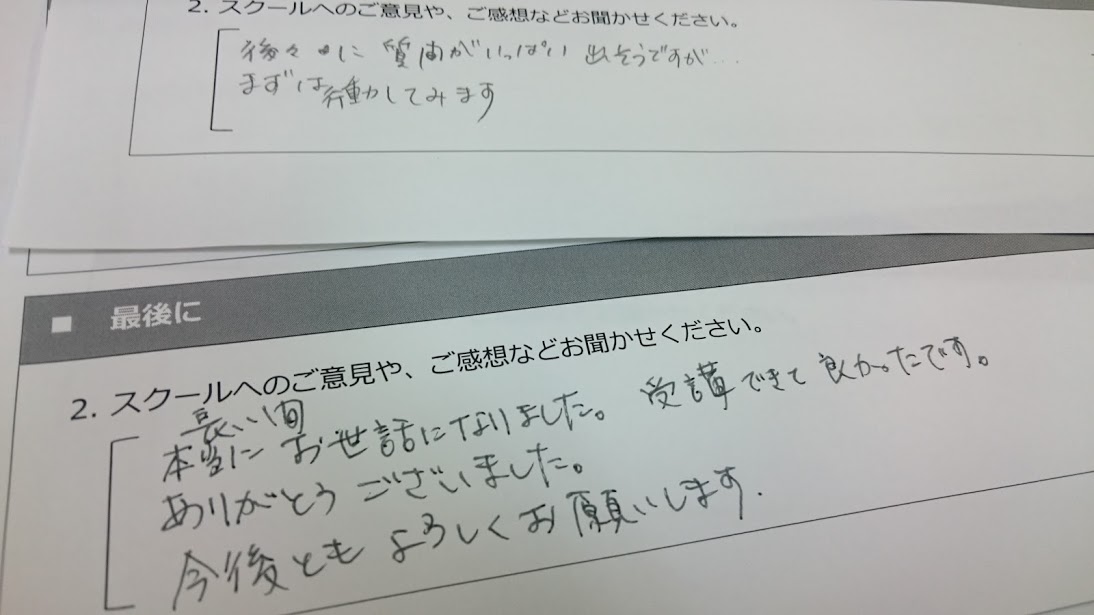 2. スクールへのご意見や、ご感想などお聞かせください。
後々に 質問がいっぱい 出そうですが...
まずは行動してみます
■ 最後に
2. スクールへのご意見や、ご感想などお聞かせください。
長い間
本当に お世話になりました。 受講できて良かったです。
ありがとうございました。
今後とも よろしくお願いします.